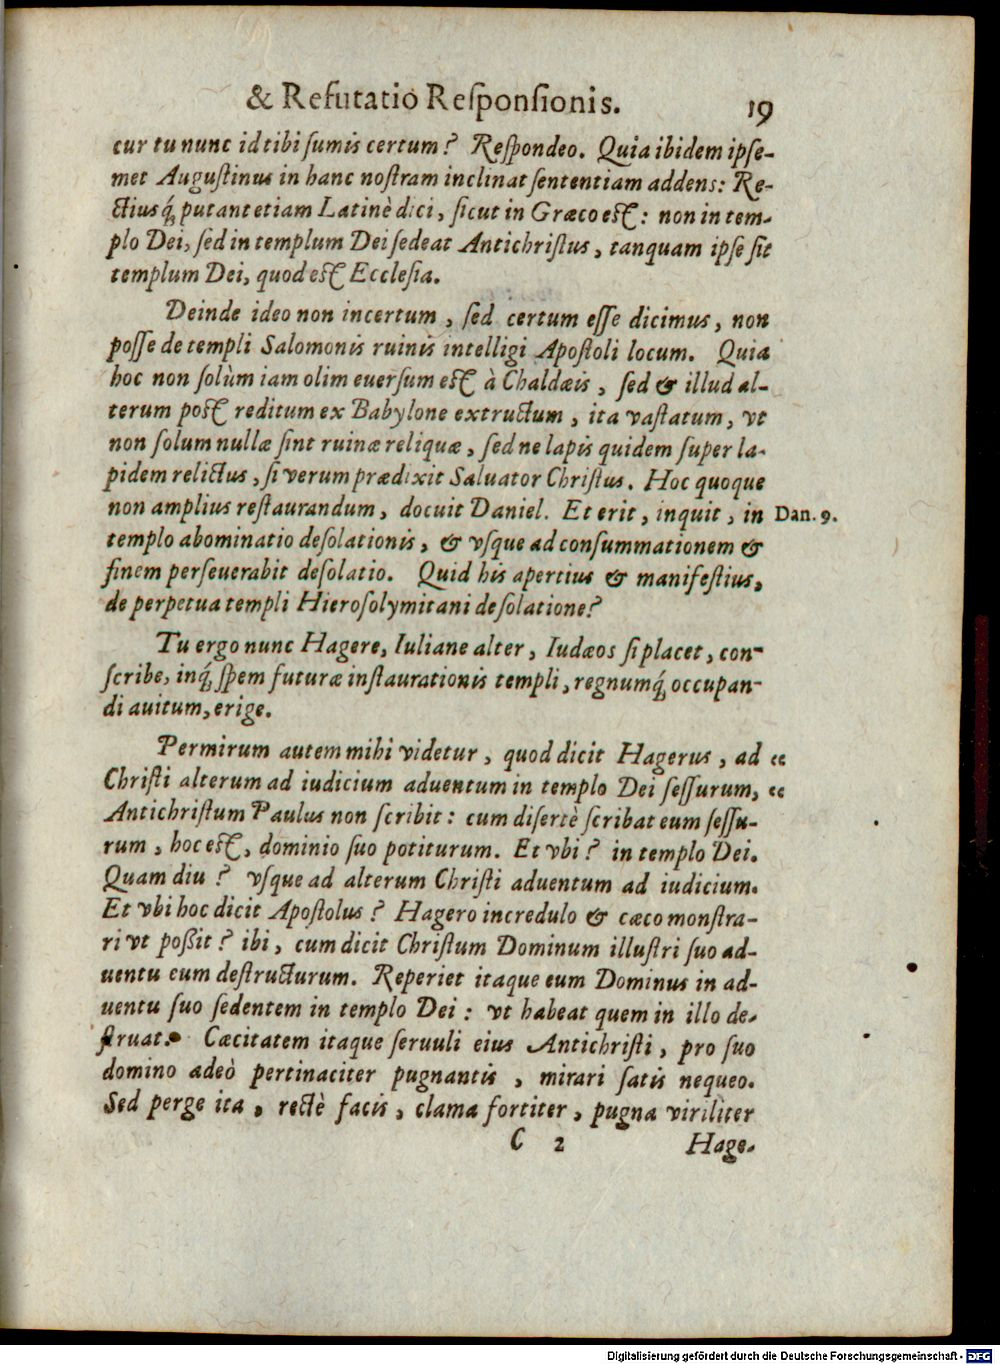 & Refutatiò Reſponſionis. 19
cur tu nunc id tibi ſumis certum? Reſpondeo. Quia ibidem ipſe-
met Auguſtinus in hanc noſtram inclinat ſententiam addens: Re-
ctiusq́; putant etiam Latinè dici, ſicut in Græco eſt: non in tem-
plo Dei, ſed in templum Dei ſedeat Antichriſtus, tanquam ipſe ſit
templum Dei, quod eſt Eccleſia.
Deinde ideo non incertum, ſed certum eſſe dicimus, non
poſſe de templi Salomonis ruinis intelligi Apoſtoli locum. Quia
hoc non ſolùm iam olim euerſum eſt à Chaldæis, ſed & illud al-
terum poſt reditum ex Babylone extructum, ita vaſtatum, vt
non ſolum nullæ ſint ruinæ reliquæ, ſed ne lapis quidem ſuper la-
pidem relictus, ſi verum prædixit Saluator Chriſtus. Hoc quoque
non amplius reſtaurandum, docuit Daniel. Et erit, inquit, in Dan. 9.
templo abominatio deſolationis, & vſque ad conſummationem &
finem perſeuerabit deſolatio. Quid his apertius & manifeſtius,
de perpetua templi Hieroſolymitani deſolatione?
Tu ergo nunc Hagere, Iuliane alter, Iudæos ſi placet, con-
ſcribe, inq́; ſpem futuræ inſtaurationis templi, regnumq́; occupan-
di auitum, erige.
Permirum autem mihi videtur, quod dicit Hagerus, ad “
Chriſti alterum ad iudicium aduentum in templo Dei ſeſſurum, “
Antichriſtum Paulus non ſcribit: cum diſertè ſcribat eum ſeſſu-
rum, hoc eſt, dominio ſuo potiturum. Et vbi? in templo Dei.
Quam diu? vſque ad alterum Chriſti aduentum ad iudicium.
Et vbi hoc dicit Apoſtolus? Hagero incredulo & cæco monſtra-
ri vt poßit? ibi, cum dicit Chriſtum Dominum illuſtri ſuo ad-
uentu eum deſtructurum. Reperiet itaque eum Dominus in ad-
uentu ſuo ſedentem in templo Dei: vt habeat quem in illo de-
ſtruat. Cæcitatem itaque ſeruuli eius Antichriſti, pro ſuo
domino adeò pertinaciter pugnantis, mirari ſatis nequeo.
Sed perge ita, rectè facis, clama fortiter, pugna viriliter
C 2 Hage-
Digitalisierung gefördert durch die Deutsche Forschungsgemeinschaft - DFG